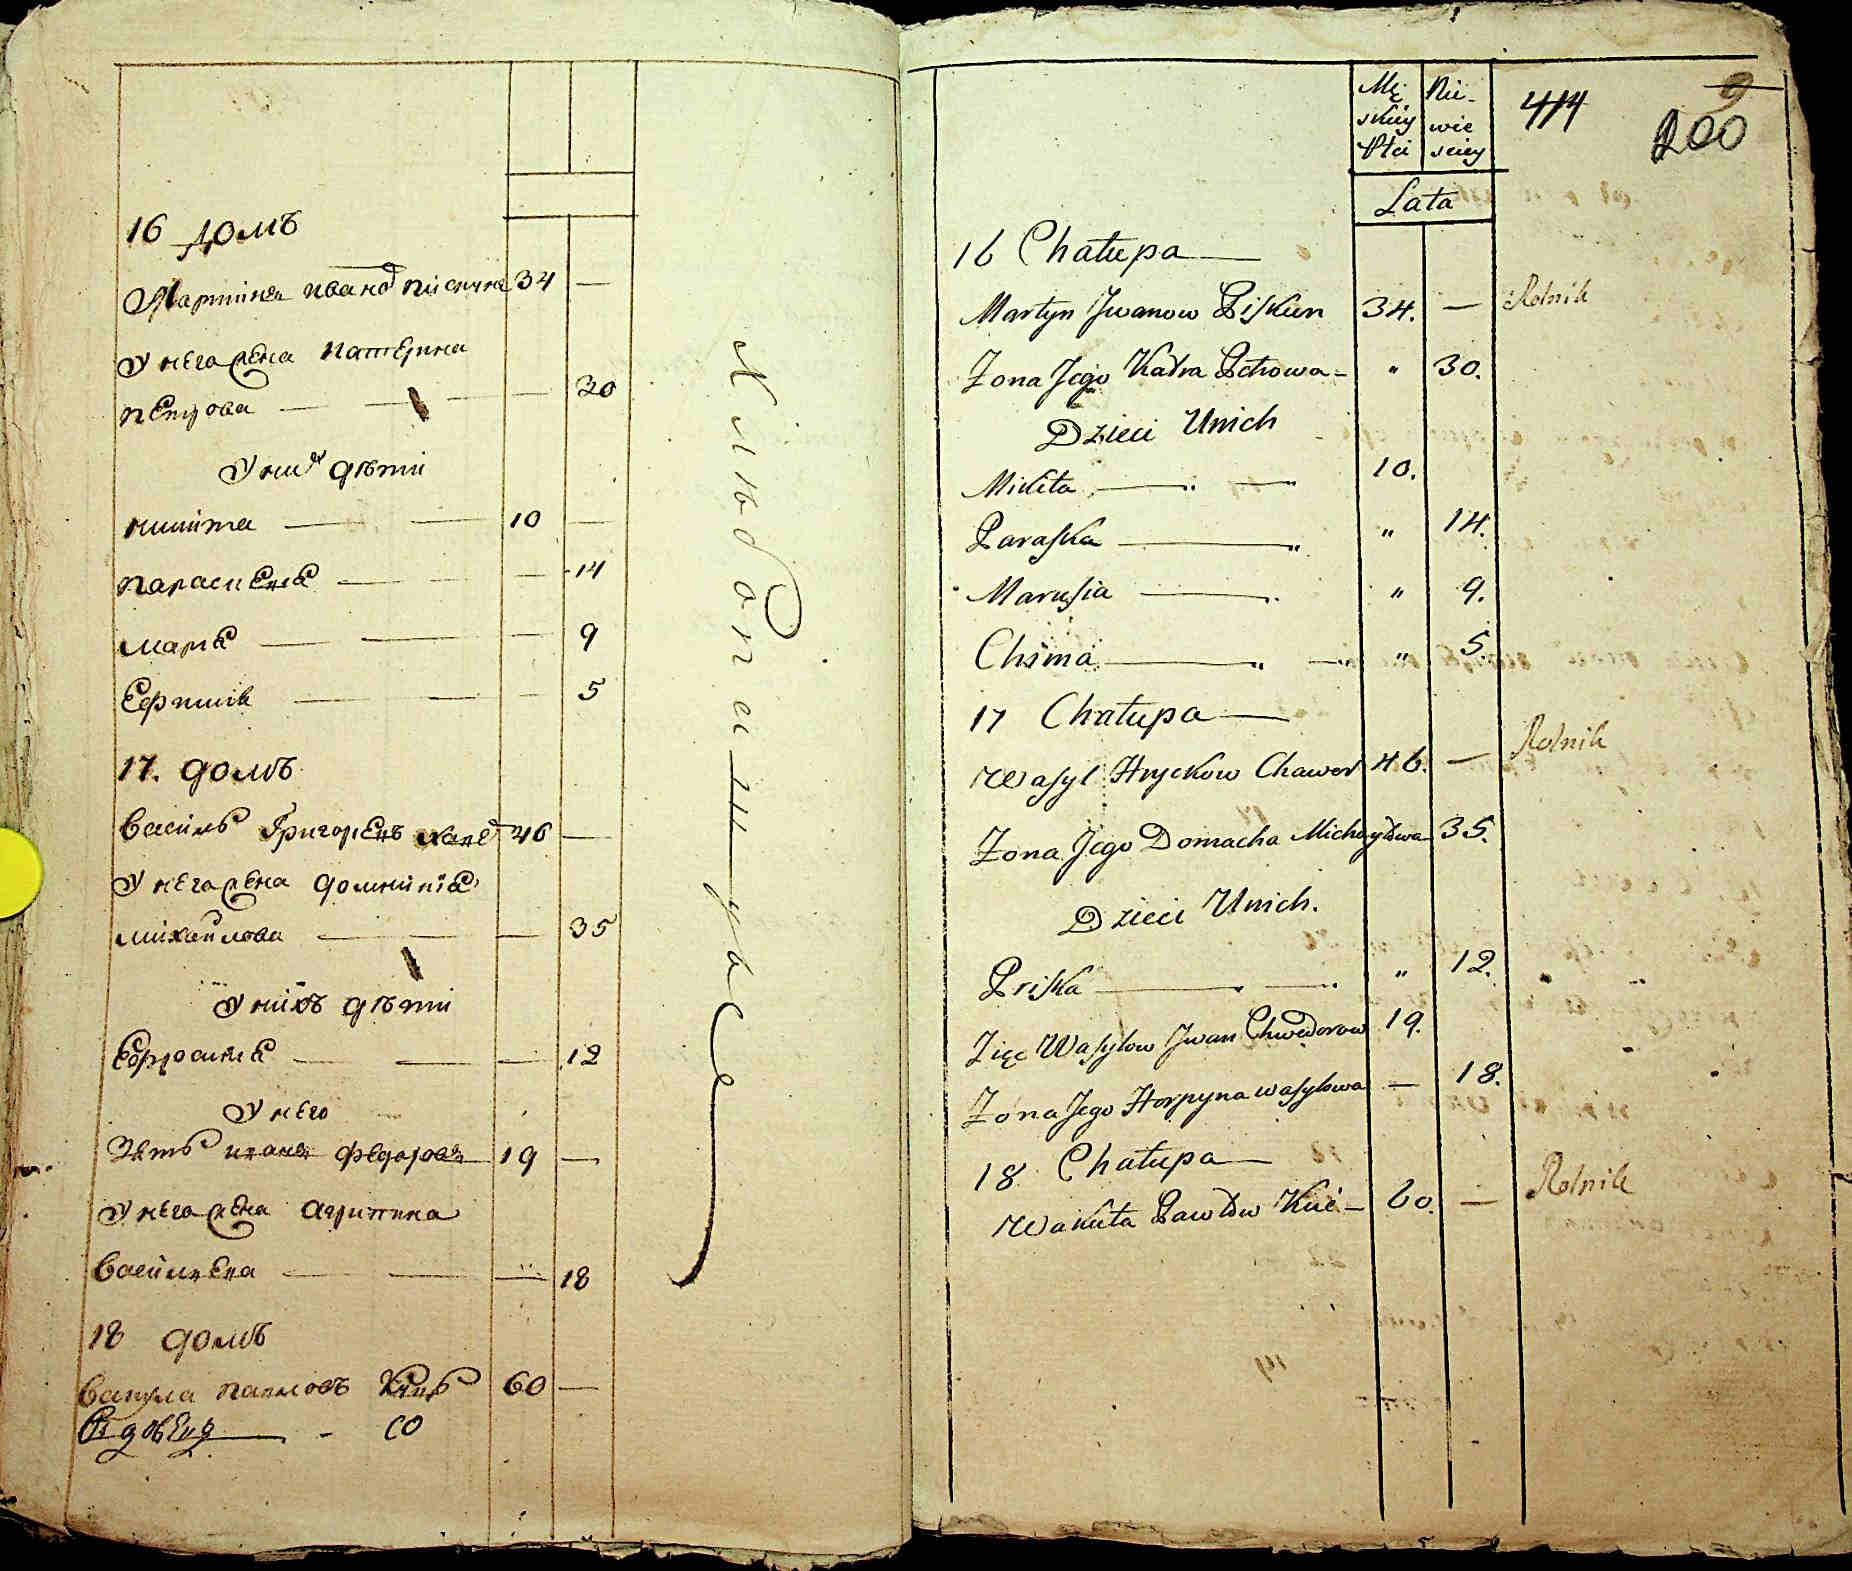 16 домъ
Мартинъ Ивано<sup>в</sup> Пискунъ 34 —
У него жена Катерина
Петрова — — — 30
У них дѣти
Никита — — 10 —
Параскевіа — — — 14
Маріа — — — 9
Ефимія — — — 5
17. домъ
Василь Григорьевъ 46 —
У него жена Домникіа
Михайлова — — 35
У нихъ дѣти
Ефросиніа — — — 12
У него
Зять Иванъ Федоровъ 19 —
У него жена Агрипина
Васильева — — — 18
18 домъ
Вакула Павловъ Куць 60 —
Хлѣбопашцы
Mę- Nie-
skiey wie
Płci sciey
414
9
200
Lata
16 Chałupa —
Martyn Jwanow Piskun 34. — Rolnik
Zona Jego Kadra Petrowa — " 30.
Dzieci Unich
Mikita — — 10.
Paraska — " 14.
Marusia — " 9.
Chima — — " 5.
17 Chałupa —
Wasyl Hryckow Chawer 46. — Rolnik
Zona Jego Domacha Michayłowa 35.
Dzieci Unich.
Priska — — " 12.
Zięć Wasylow Jwan Chwedorow 19.
Zona Jego Horpyna wasylowa — 18.
18 Chałupa —
Wakuła Pawłow Kuć — 60. — Rolnik